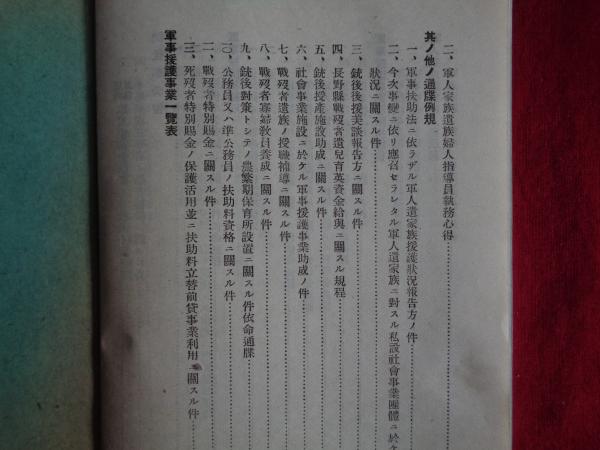 二、軍人家族遺族婦人指導員執務心得
其ノ他ノ通牒例規
一、軍事扶助法ニ依ラザル軍人遺家族援護狀況報告方ノ件
二、今次事變ニ依リ應召セラレタル軍人遺家族ニ對スル私設社會事業團體ニ於ケ
狀況ニ關スル件
三、銃後後援美談報告方ニ關スル件
四、長野縣戰歿者遺兒育英資金給與ニ關スル規程
五、銃後授產施設助成ニ關スル件
六、社會事業施設ニ於ケル軍事援護事業助成ノ件
七、戰歿者遺族ノ授職補導ニ關スル件
八、戰歿者寡婦敎員養成ニ關スル件
九、銃後對策トシテノ農繁期保育所設置ニ關スル件依命通牒
一〇、公務員又ハ準公務員ノ扶助料資格ニ關スル件
一一、戰歿者特別賜金ニ關スル件
一二、死歿者特別賜金ノ保護活用並ニ扶助料立替前貸事業利用ニ關スル件
軍事援護事業一覽表